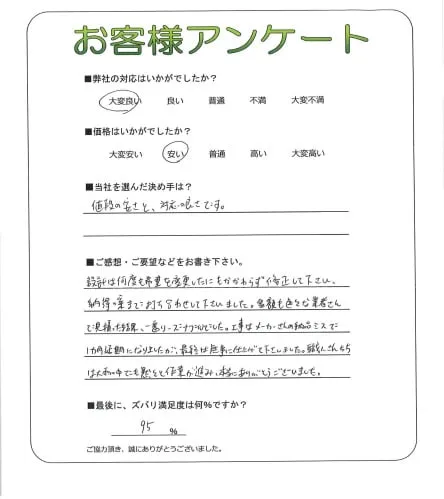 お客様アンケート
■弊社の対応はいかがでしたか?
大変良い 良い 普通 不満 大変不満
■価格はいかがでしたか?
大変安い 安い 普通 高い 大変高い
■当社を選んだ決め手は?
値段の安さと、対応の良さです。
■ご感想・ご要望などをお書き下さい。
設計は何度も希望を変更したにもかかわらず修正して下さい、
納得の案まで打ち合わせして下さいました。金額も色々な業者さん
で見積った結果、一番リーズナブルでした。工事はメーカーさんの納品ミスで
1カ月延期になりましたが、最終は無事に仕上げて下さいました。職人さんたち
は大雨の中でも黙々と作業が進み、本当にありがとうございました。
■最後に、ズバリ満足度は何%ですか?
95 %
ご協力頂き、誠にありがとうございました。